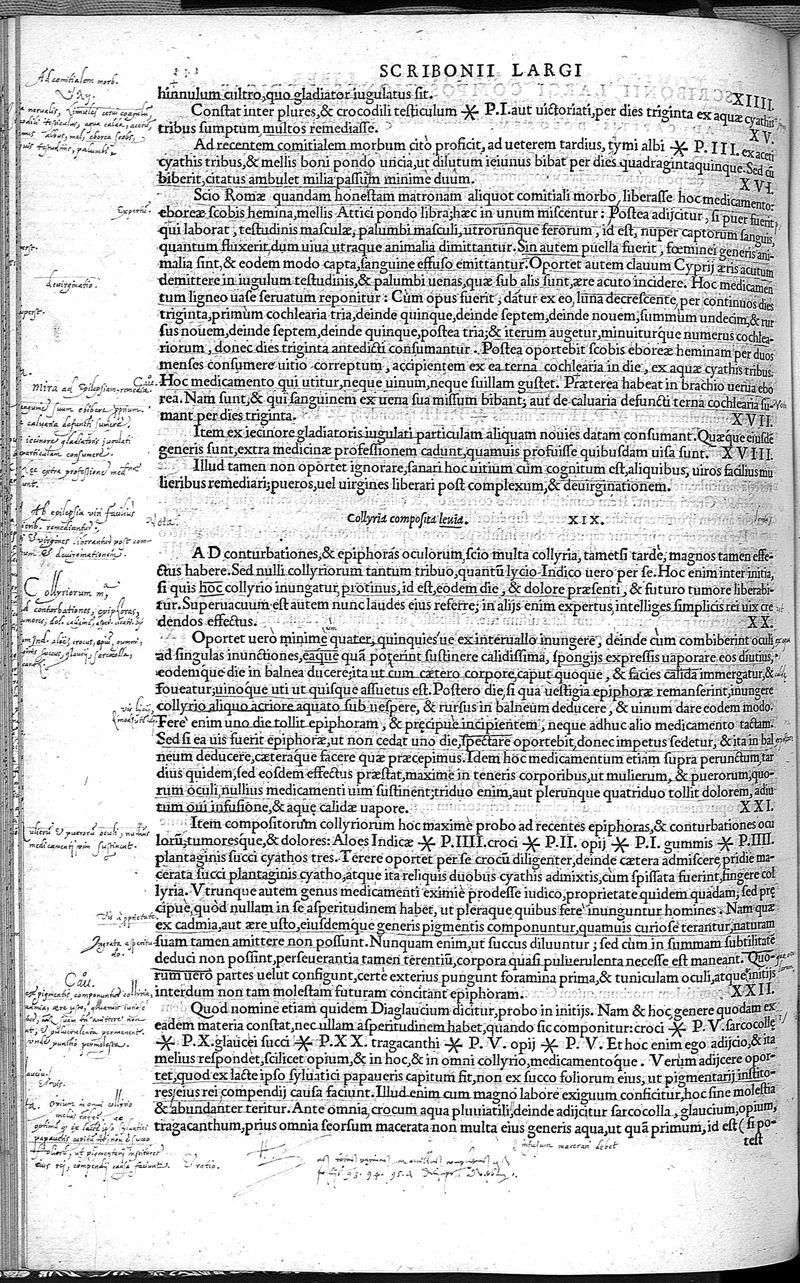 SCRIBONII LARGI
hinnulum cultro, quo gladiator iugulatus sit. XIIII.
Constat inter plures, & crocodili testiculum ⁎ P.I. aut uictoriati, per dies triginta ex aquæ cyathis
tribus sumptum multos remediasse. XV.
Ad recentem comitialem morbum citò proficit, ad ueterem tardius, tymi albi ⁎ P. III. ex aceti
cyathis tribus, & mellis boni pondo uncia, ut dilutum ieiunus bibat per dies quadragintaquinque. Sed cũ
biberit, citatus ambulet milia passum minimè duûm. XVI.
Scio Romæ quandam honestam matronam aliquot comitiali morbo, liberasse hoc medicamento:
eboreæ scobis hemina, mellis Attici pondo libra; hæc in unum miscentur: Postea adijcitur, si puer fuerit
qui laborat, testudinis masculæ, palumbi masculi, utrorunque ferorum, id est, nuper captorum sanguis,
quantum fluxerit, dum uiua utraque animalia dimittantur. Sin autem puella fuerit, fœminei generis ani-
malia sint, & eodem modo capta, sanguine effuso emittantur. Oportet autem clauum Cyprij æris acutum
demittere in iugulum testudinis, & palumbi uenas, quæ sub alis sunt, ære acuto incidere. Hoc medicamen
tum ligneo uase seruatum reponitur: Cùm opus fuerit, datur ex eo, luna decrescente, per continuos dies
triginta, primùm cochlearia tria, deinde quinque, deinde septem, deinde nouem, summum undecim, & rur
sus nouem, deinde septem, deinde quinque, postea tria; & iterum augetur, minuiturq́ue numerus cochlea-
riorum, donec dies triginta antedicti consumantur. Postea oportebit scobis eboreæ heminam per duos
menses consumere uitio correptum, accipientem ex ea terna cochlearia in die, ex aquæ cyathis tribus.
Hoc medicamento qui utitur, neque uinum, neque suillam gustet. Præterea habeat in brachio uerua ebo
rea. Nam sunt, & qui sanguinem ex uena sua missum bibant; aut de caluaria defuncti terna cochlearia su-
mant per dies triginta. XVII.
Item ex iecinore gladiatoris iugulati particulam aliquam nouies datam consumant. Quæque eiusdē
generis sunt, extra medicinæ professionem cadunt, quamuis profuisse quibusdam uisa sunt. XVIII.
Illud tamen non oportet ignorare, sanari hoc uitium cum cognitum est, aliquibus, uiros facilius mu
lieribus remediari; pueros, uel uirgines liberari post complexum, & deuirginationem.
Collyria composita leuia. XIX.
AD conturbationes, & epiphoras oculorum, scio multa collyria, tametsi tardè, magnos tamen effe-
ctus habere. Sed nulli collyriorum tantum tribuo, quantũ lycio Indico uero per se. Hoc enim inter initia,
si quis hoc collyrio inungatur, protinus, id est, eodem die, & dolore præsenti, & futuro tumore liberabi-
tur. Superuacuum est autem nunc laudes eius referre; in alijs enim expertus intelliges simplicis rei uix cre
dendos effectus. XX.
Oportet uerò minimè quater, quinquiesue ex interuallo inungere, deinde cum combiberint oculi
ad singulas inunctiones, eaque quâ poterint sustinere calidissima, spongijs expressis uaporare eos diutius,
eodemque die in balnea ducere, ita ut cum cætero corpore, caput quoque, & facies calida immergatur, &
foueatur, uinoque uti ut quisque assuetus est. Postero die, si qua uestigia epiphoræ remanserint, inungere
collyrio aliquo acriore aquato sub uespere, & rursus in balneum deducere, & uinum dare eodem modo.
Ferè enim uno die tollit epiphoram, & pręcipuè incipientem, neque adhuc alio medicamento tactam.
Sed si ea uis fuerit epiphoræ, ut non cedat uno die, spectare oportebit, donec impetus sedetur, & ita in bal
neum deducere, cæteraque facere quæ præcepimus. Idem hoc medicamentum etiam supra perunctum, tar
dius quidem, sed eosdem effectus præstat, maximè in teneris corporibus, ut mulierum, & puerorum, quo-
rum oculi, nullius medicamenti uim sustinent; triduo enim, aut plerunque quatriduo tollit dolorem, adiu
tum oui infusione, & aquę calidæ uapore. XXI.
Item compositorum collyriorum hoc maximè probo ad recentes epiphoras, & conturbationes ocu
lorũ, tumoresque, & dolores: Aloes Indicæ ⁎ P. IIII. croci ⁎ P. II. opij ⁎ P. I. gummis ⁎ P. IIII.
plantaginis succi cyathos tres. Terere oportet per se crocũ diligenter, deinde cætera admiscere, pridie ma-
cerata succi plantaginis cyatho, atque ita reliquis duobus cyathis admixtis, cùm spissata fuerint, fingere col
lyria. Vtrunque autem genus medicamenti eximiè prodesse iudico, proprietate quidem quadam, sed prę
cipuè, quòd nullam in se asperitudinem habet, ut pleraque quibus ferè inunguntur homines: Nam quæ
ex cadmia, aut ære usto, eiusdemque generis pigmentis componuntur, quamuis curiosè terantur, naturam
suam tamen amittere non possunt. Nunquam enim, ut succus diluuntur; sed cùm in summam subtilitatē
deduci non possint, perseuerantia tamen terentiũ, corpora quasi puluerulenta necesse est maneant. Quo-
rum uerò partes uelut configunt, certè exterius pungunt foramina prima, & tuniculam oculi, atque initijs
interdum non tam molestam futuram concitant epiphoram. XXII.
Quod nomine etiam quidem Diaglaucium dicitur, probo in initijs. Nam & hoc genere quodam ex
eadem materia constat, nec ullam asperitudinem habet, quando sic componitur: croci ⁎ P. V. sarcocollę
⁎ P. X. glaucei succi ⁎ P. XX. tragacanthi ⁎ P. V. opij ⁎ P. V. Et hoc enim ego adijcio, & ita
melius respondet, scilicet opium, & in hoc, & in omni collyrio, medicamentoque. Verùm adijcere opor-
tet, quod ex lacte ipso syluatici papaueris capitum fit, non ex succo foliorum eius, ut pigmentarij instito-
res, eius rei compendij causa faciunt. Illud enim cum magno labore exiguum conficitur, hoc sine molestia
& abundanter teritur. Ante omnia, crocum aqua pluuiatili, deinde adijcitur sarcocolla, glaucium, opium,
tragacanthum, prius omnia seorsum macerata non multa eius generis aqua, ut quâ primum, id est (si po-
test
Ad comitialem morb.
deuirginatio.
mira ad Epilepsiam remedia.
Ab epilepsia viri facilius
Nota.
Collyriorum
Ingrata asperitu-
do.
Cau.
Opium in omni collyrio
eius rej, compendij causa faciunt.